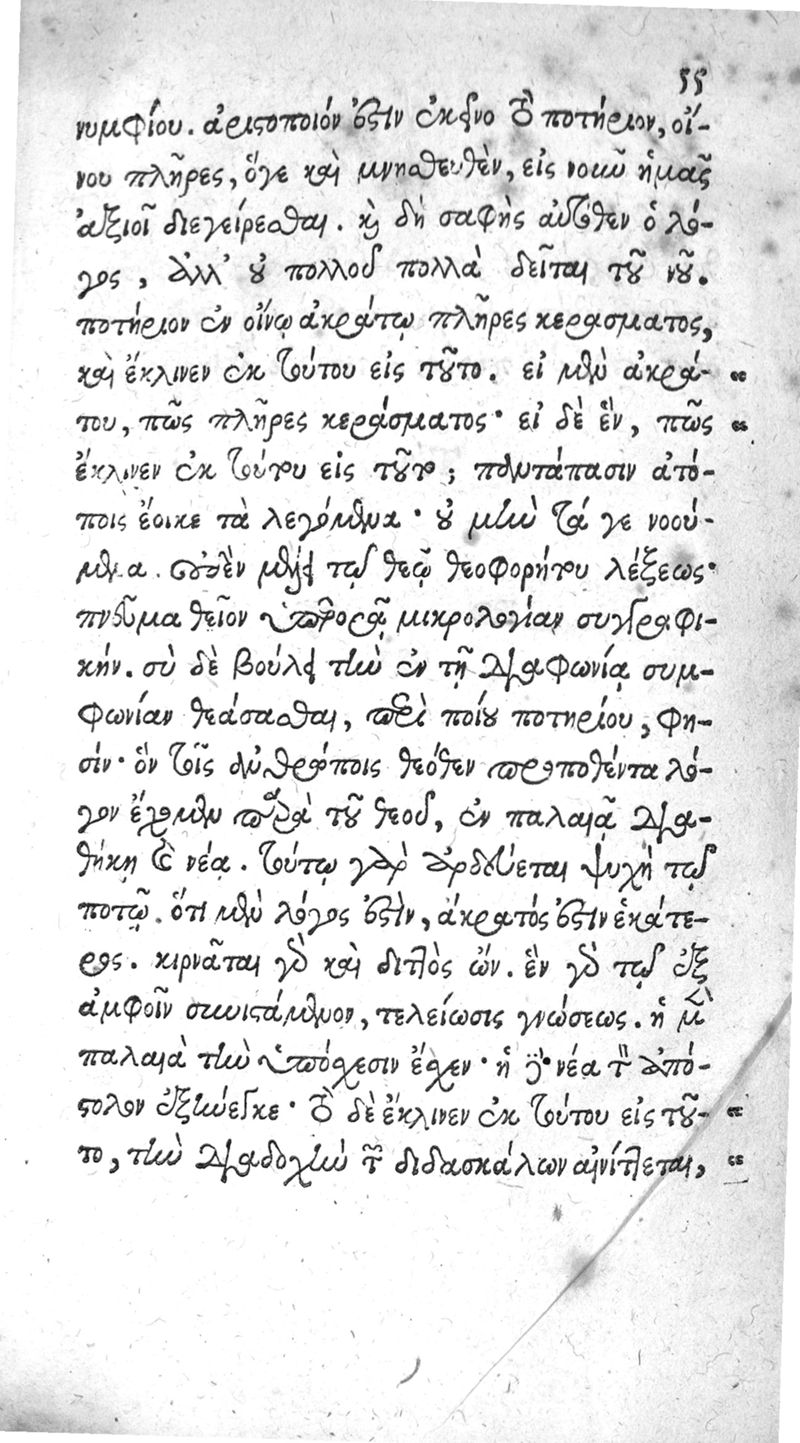 55
νυμφίου. ἀριστοποιόν ἐστιν ἐκεῖνο τὸ ποτήριον, οἴ-
νου πλῆρες, ὅγε καὶ μνησθευθὲν, εἰς νοῦν ἡμᾶς
ἀξιοῖ διεγείρεσθαι. καὶ δὴ σαφὴς αὐτόθεν ὁ λό-
γος, ἀλλ' οὐ πολλοῦ πολλὰ δεῖται τοῦ νοῦ.
ποτήριον ἐν οἴνῳ ἀκράτῳ πλῆρες κεράσματος,
καὶ ἔκλινεν ἐκ τούτου εἰς τοῦτο. εἰ μὲν ἀκρά- “
του, πῶς πλῆρες κεράσματος· εἰ δὲ ἓν, πῶς “
ἔκλινεν ἐκ τούτου εἰς τοῦτο; παντάπασιν ἀτό-
ποις ἔοικε τὰ λεγόμενα· οὐ μὴν τά γε νοού-
μενα. οὐδὲν μέλει τῷ θεῷ θεοφορήτου λέξεως·
πνεῦμα θεῖον ὑπερορᾷ μικρολογίαν συγγραφι-
κήν. σὺ δὲ βούλει τὴν ἐν τῇ διαφωνίᾳ συμ-
φωνίαν θεάσασθαι, περὶ ποίου ποτηρίου, φη-
σίν· ὃν τοῖς ἀνθρώποις θεόθεν προποθέντα λό-
γον ἔχομεν παρὰ τοῦ θεοῦ, ἐν παλαιᾷ δια-
θήκῃ καὶ νέᾳ. τούτῳ γὰρ ἀρδεύεται ψυχὴ τῷ
ποτῷ. ὅτι μὲν λόγος ἐστὶν, ἄκρατός ἐστιν ἑκάτε-
ρος. κιρνᾶται γὰρ καὶ διπλὸς ὤν. ἓν γὰρ τῷ ἐξ
ἀμφοῖν συνιστάμενον, τελείωσις γνώσεως. ἡ μὲν
παλαιὰ τὴν ὑπόσχεσιν ἔχεν· ἡ δὲ νέα τὸν ἀπό-
στολον ἐξήνεγκε· τὸ δὲ ἔκλινεν ἐκ τούτου εἰς τοῦ- “
το, τὴν διαδοχὴν τῶν διδασκάλων αἰνίττεται, “